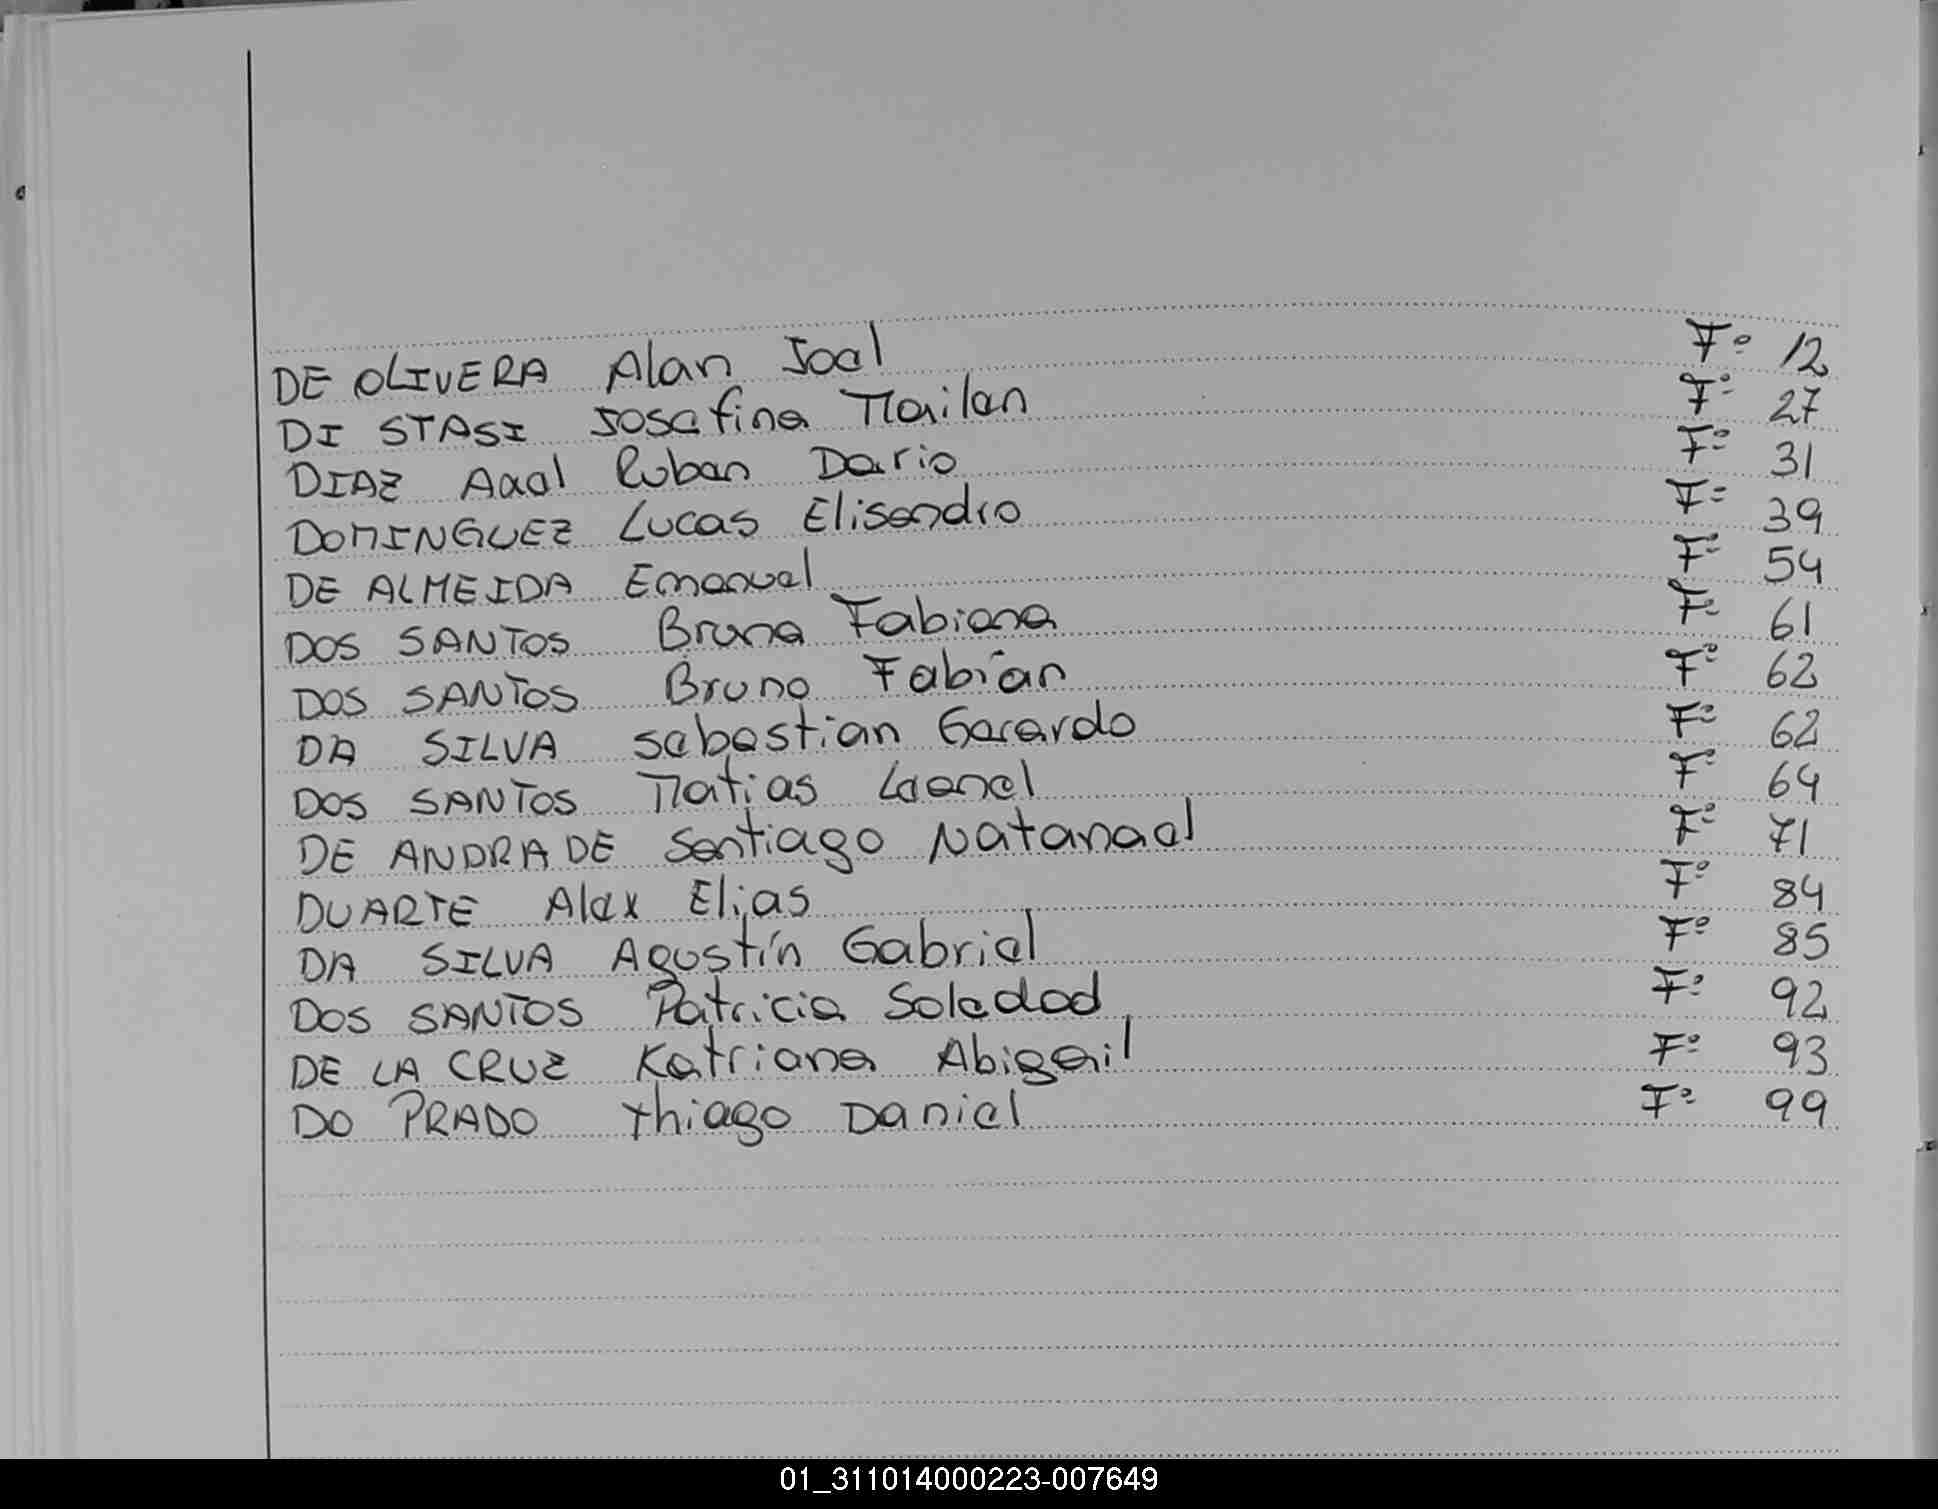 DE OLIVERA Alan Joel F° 12
DI STASI Josefina Mailen F° 27
DIAZ Axel Ruben Dario F° 31
DOMINGUEZ Lucas Elisandro F° 39
DE ALMEIDA Emanuel F° 54
DOS SANTOS Bruna Fabiana F° 61
DOS SANTOS Bruno Fabián F° 62
DA SILVA Sebastian Gerardo F° 62
DOS SANTOS Matias Leonel F° 64
DE ANDRADE Santiago Natanael F° 71
DUARTE Alex Elias F° 84
DA SILVA Agustín Gabriel F° 85
DOS SANTOS Patricia Soledad F° 92
DE LA CRUZ Katriana Abigail F° 93
DO PRADO Thiago Daniel F° 99
01_311014000223-007649